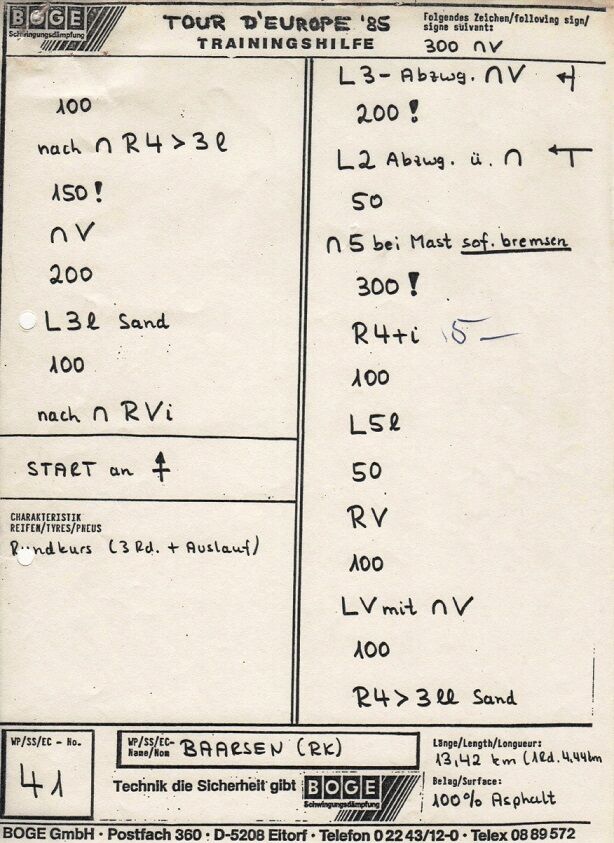 BOGE
Schwingungsdämpfung
TOUR D'EUROPE '85
TRAININGSHILFE
Folgendes Zeichen/following sign/
signe suivant:
300 ∩V
100
nach ∩ R4 > 3l
150!
∩V
200
L3l Sand
100
nach ∩ RVi
START an
CHARAKTERISTIK
REIFEN/TYRES/PNEUS
Rundkurs (3 Rd. + Auslauf)
L3- Abzwg. ∩V
200!
L2 Abzwg. ü. ∩
50
∩5 bei Mast sof. bremsen
300!
R4+i 5-
100
L5l
50
RV
100
LV mit ∩V
100
R4 > 3ll Sand
WP/SS/EC - No.
41
WP/SS/EC-
Name/Nom
BAARSEN (RK)
Technik die Sicherheit gibt
BOGE
Schwingungsdämpfung
Länge/Length/Longueur:
13,42 km (1Rd. 4,44km
Belag/Surface:
100% Asphalt
BOGE GmbH · Postfach 360 · D-5208 Eitorf · Telefon 0 22 43/12-0 · Telex 08 89 572